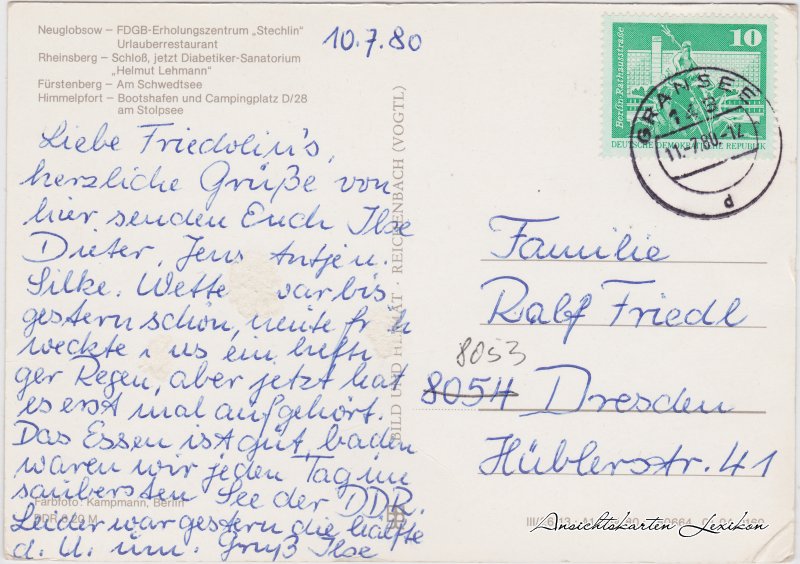 Neuglobsow – FDGB-Erholungszentrum „Stechlin"
Urlauberrestaurant
Rheinsberg – Schloß, jetzt Diabetiker-Sanatorium
„Helmut Lehmann"
Fürstenberg – Am Schwedtsee
Himmelpfort – Bootshafen und Campingplatz D/28
am Stolpsee
10.7.80
Liebe Friedolin's,
herzliche Grüße von
hier senden Euch Ilse
Dieter, Jens Antje u.
Silke. Wette war bis
gestern schön, heute fr h
weckte uns ein hefti
ger Regen, aber jetzt hat
es erst mal aufgehört.
Das Essen ist gut, baden
waren wir jeden Tag im
saubersten See der DDR.
Leider war gestern die hälfte
d. U. üm. Gruß Ilse
Farbfoto: Kampmann, Berlin
DDR 0,20 M
BILD UND HEIMAT · REICHENBACH (VOGTL)
10
Berlin, Rathausstraße
DEUTSCHE DEMOKRATISCHE REPUBLIK
GRANSEE
11.-7.80.-12
d
Familie
Ralf Friedl
8053
8054 Dresden
Hüblerstr. 41
Ansichtskarten Lexikon